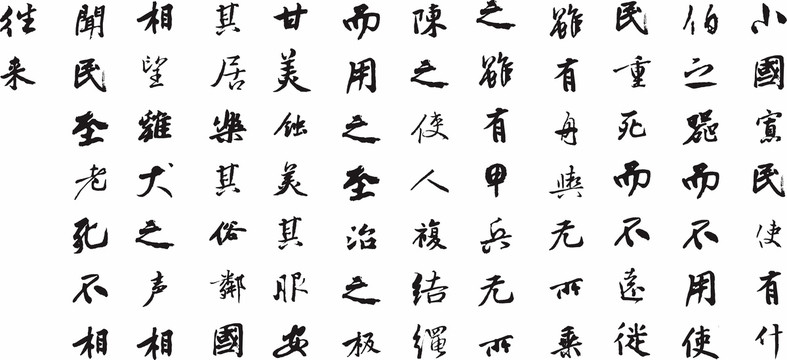 小國寡民使有什
伯之器而不用使
民重死而不遠徙
雖有舟輿无所乘
之雖有甲兵无所
陳之使人複結繩
而用之至治之板
甘美蝕美其服安
其居樂其俗鄰國
相望雞犬之声相
聞民至老死不相
往来